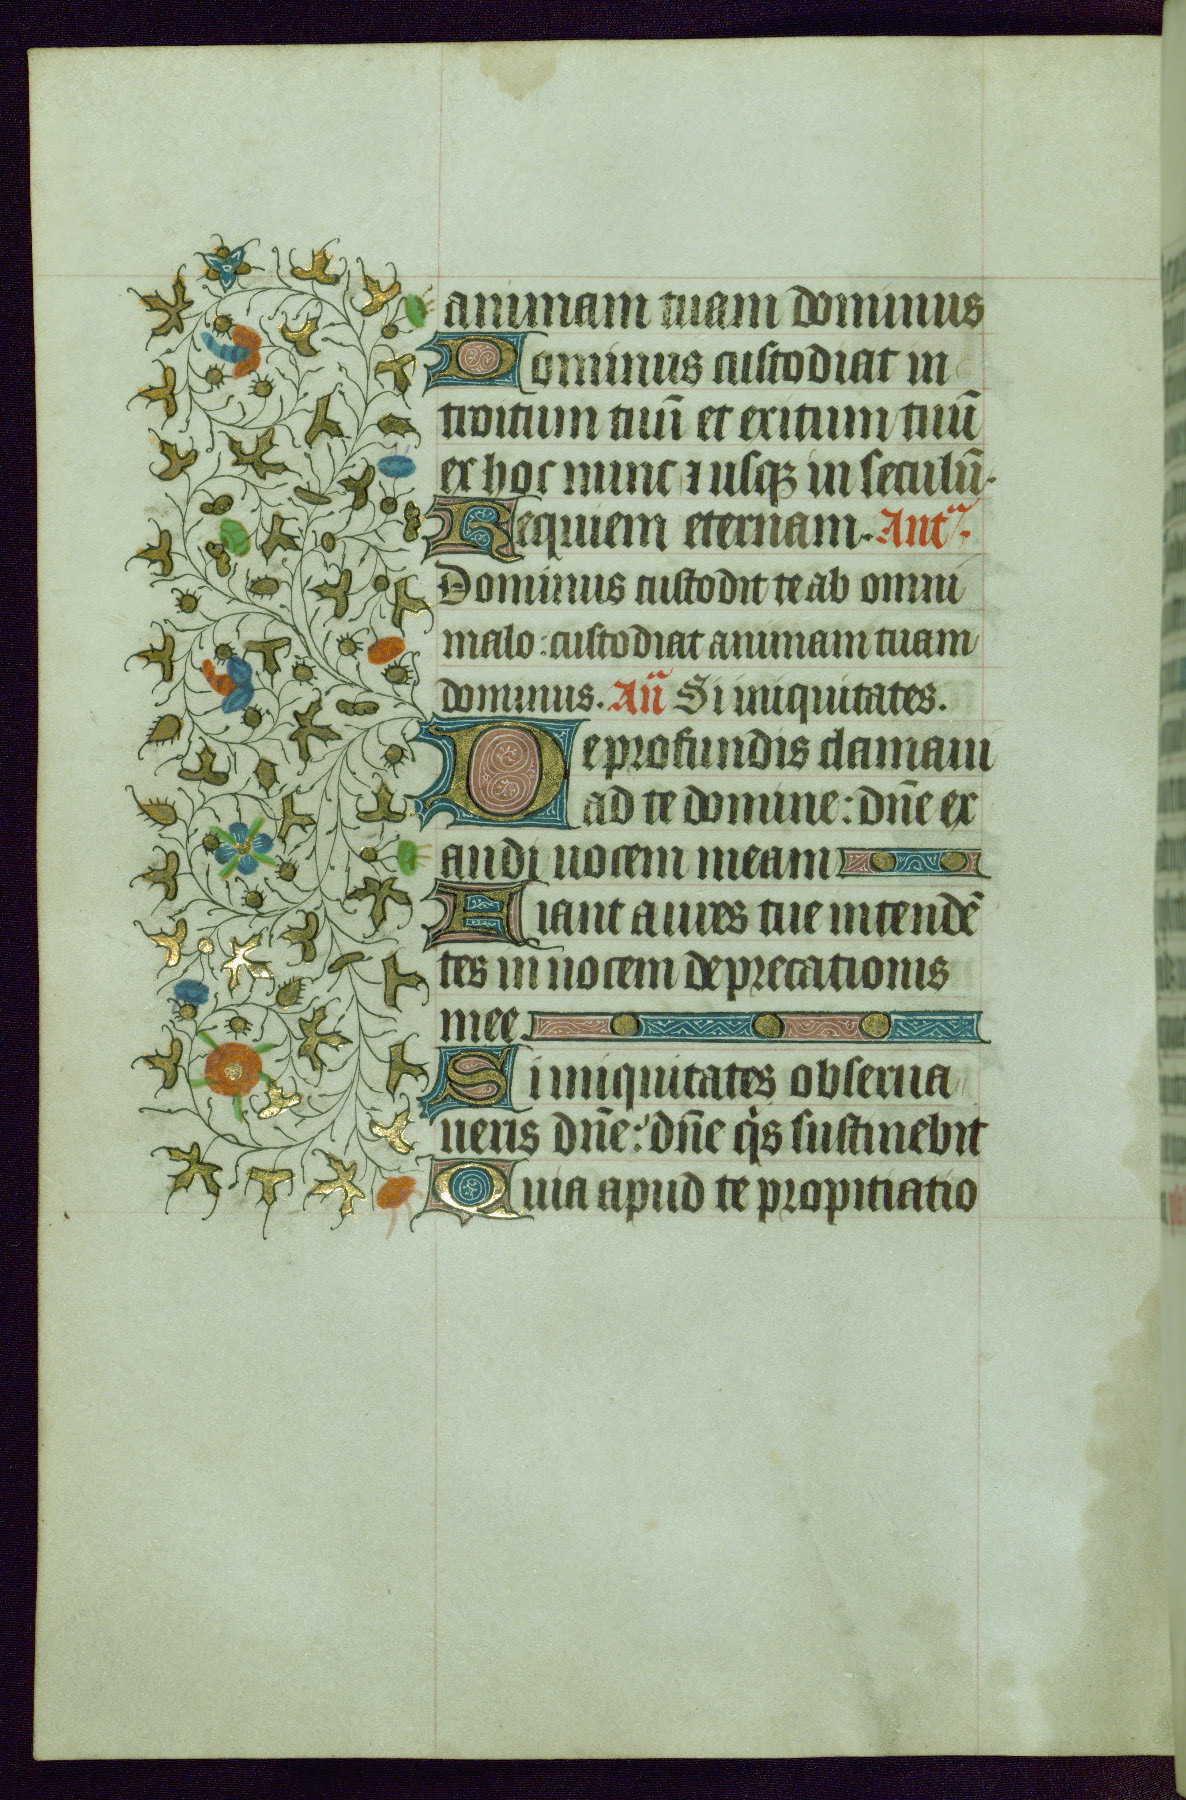 animam tuam dominus
Dominus custodiat in
troitum tuū et exitum tuū
ex hoc nunc ⁊ usqꝫ in seculū.
Requiem eternam. Antᵃ.
Dominus custodit te ab omni
malo: custodiat animam tuam
dominus. Añ Si iniquitates.
De profundis clamaui
ad te domine: dñe ex
audi uocem meam
Fiant aures tue intendē
tes in uocem deprecationis
mee
Si iniquitates obserua
ueris dñe: dñe qis sustinebit
Quia apud te propitiatio